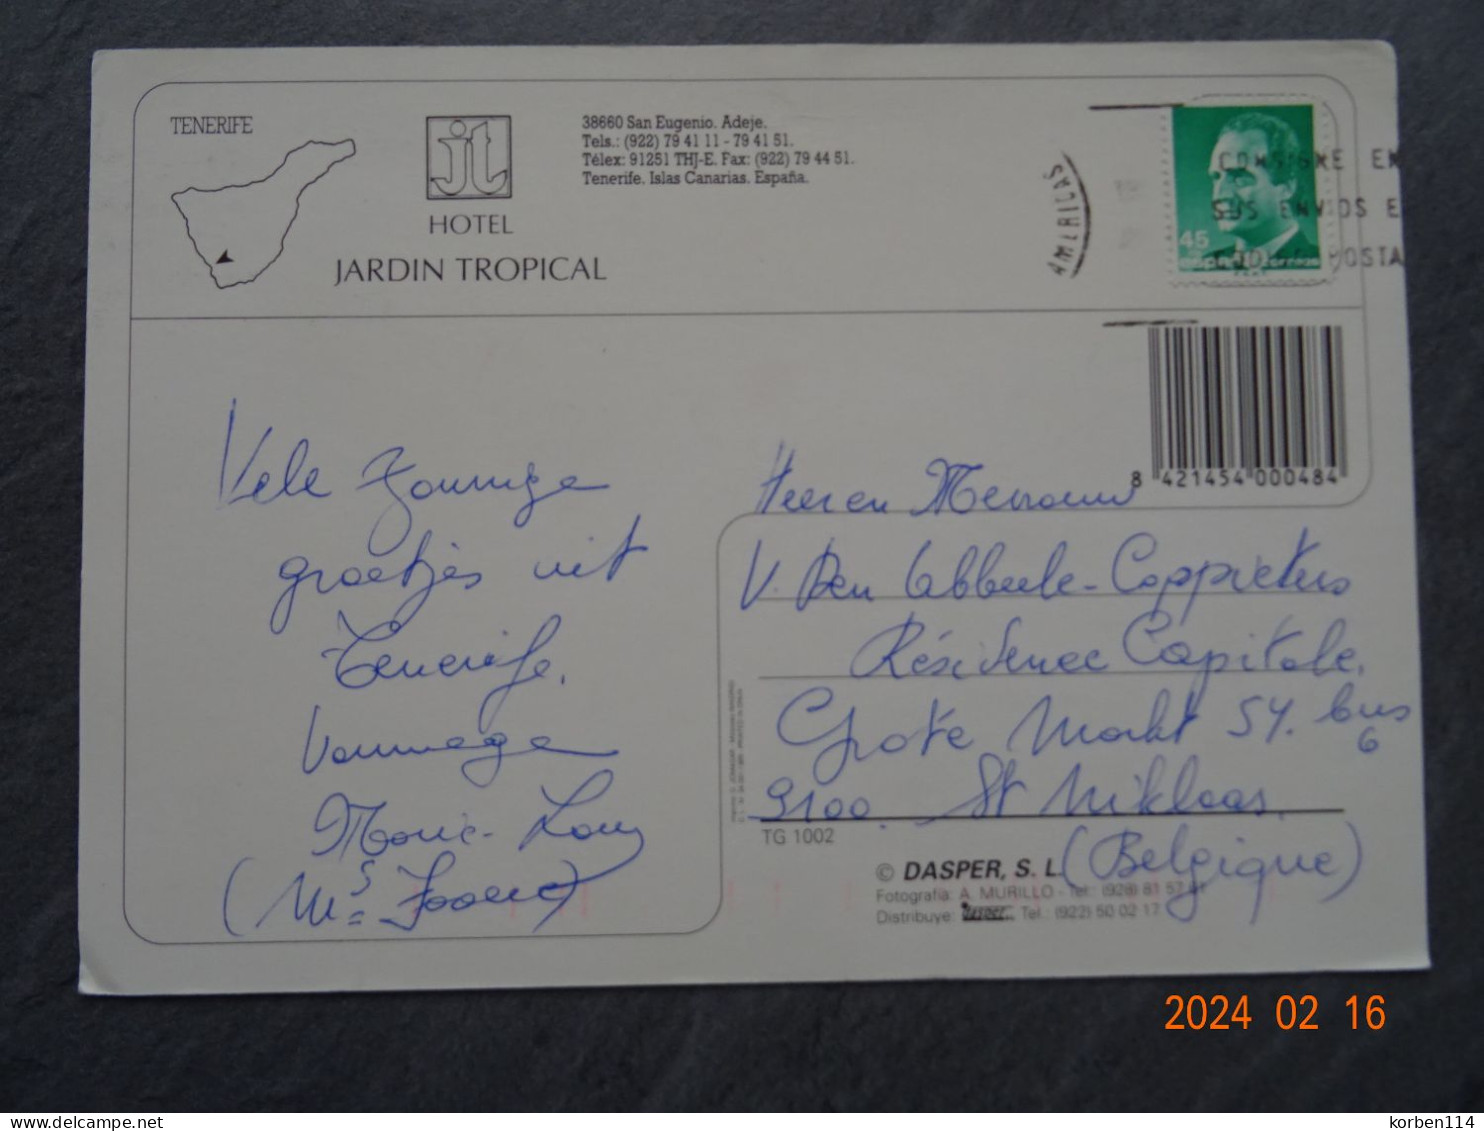 TENERIFE
HOTEL
JARDIN TROPICAL
38660 San Eugenio. Adeje.
Tels.: (922) 79 41 11 - 79 41 51.
Télex: 91251 THJ-E. Fax: (922) 79 44 51.
Tenerife. Islas Canarias. España.
AMERICAS
CONSIGNE EN
SUS ENVIOS E
POSTA
45
8 421454 000484
Vele zonnige
groetjes uit
Tenerife.
Vanwege
Marie-Lou
(Ms
Heer en Mevrouw
V. Den Abbeele-Coppieters
Résidence Capitole.
Grote Markt 54. bus
6
9100. St Niklaas.
(Belgique)
TG 1002
© DASPER, S. L.
Fotografía: A. MURILLO - Tel.: (928) 81 57 81
Distribuye: Tel.: (922) 50 02 17
2024 02 16
delcampe.net
korben114